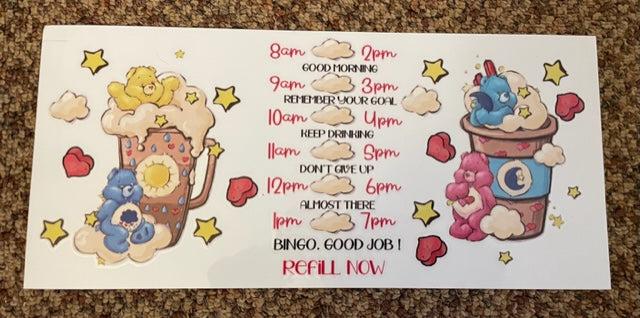 8am 2pm
GOOD MORNING
9am 3pm
REMEMBER YOUR GOAL
10am 4pm
KEEP DRINKING
11am 5pm
DON'T GIVE UP
12pm 6pm
ALMOST THERE
1pm 7pm
BINGO. GOOD JOB!
REFILL NOW